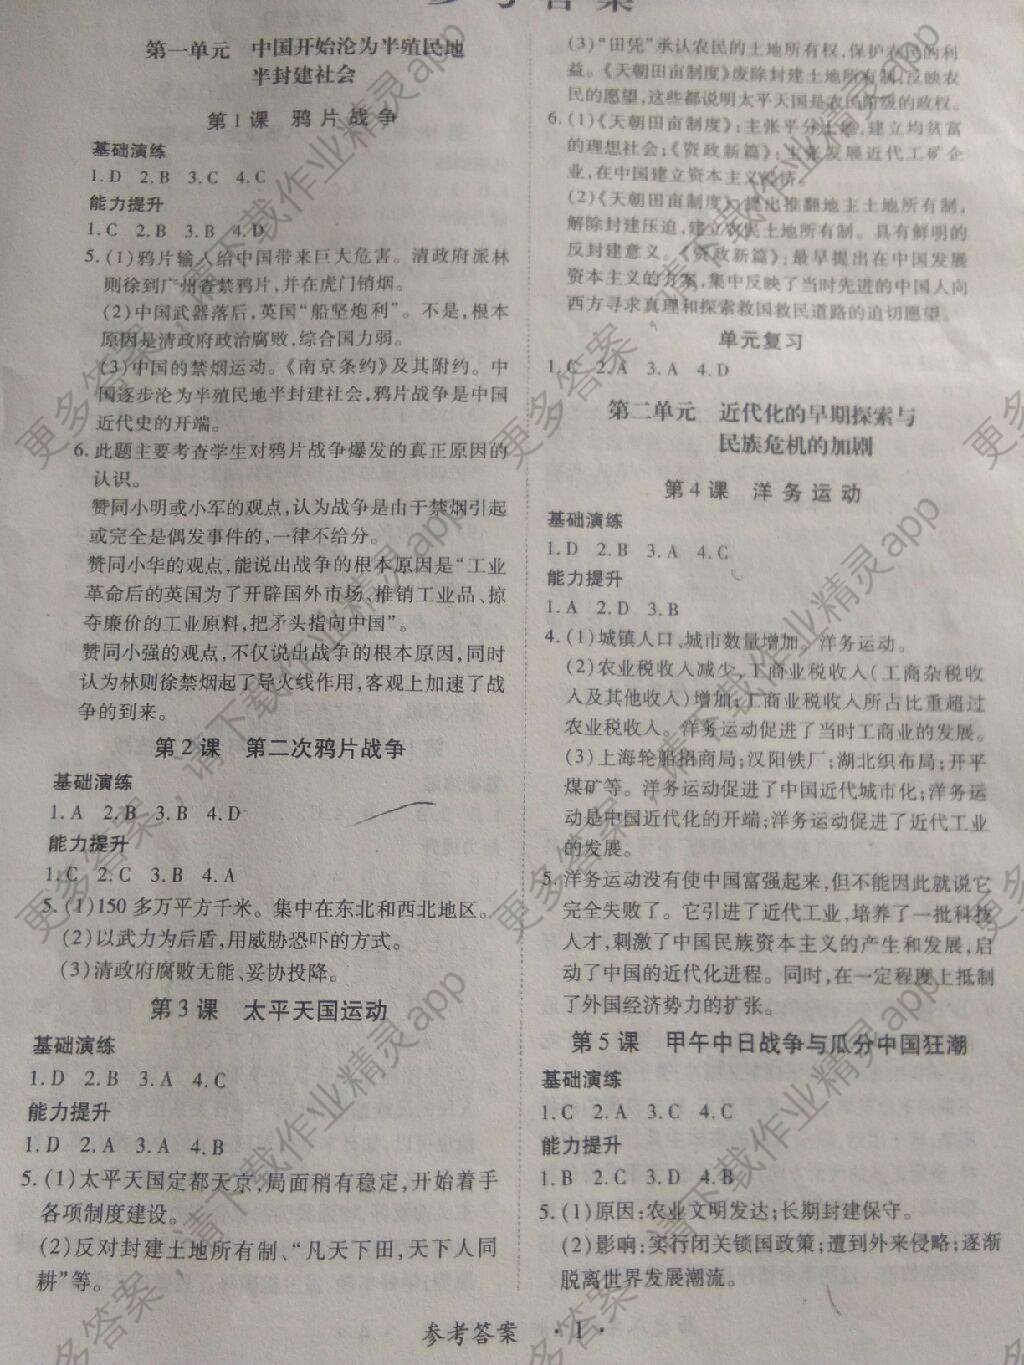 参考答案
第一单元 中国开始沦为半殖民地
半封建社会
第1课 鸦片战争
基础演练
1.D 2.B 3.C 4.C
能力提升
1.C 2.B 3.B 4.D
5.(1)鸦片输入给中国带来巨大危害。清政府派林
则徐到广州查禁鸦片,并在虎门销烟。
(2)中国武器落后,英国“船坚炮利”。不是,根本
原因是清政府政治腐败,综合国力弱。
(3)中国的禁烟运动。《南京条约》及其附约。中
国逐步沦为半殖民地半封建社会,鸦片战争是中国
近代史的开端。
6.此题主要考查学生对鸦片战争爆发的真正原因的
认识。
赞同小明或小军的观点,认为战争是由于禁烟引起
或完全是偶发事件的,一律不给分。
赞同小华的观点,能说出战争的根本原因是“工业
革命后的英国为了开辟国外市场、推销工业品、掠
夺廉价的工业原料,把矛头指向中国”。
赞同小强的观点,不仅说出战争的根本原因,同时
认为林则徐禁烟起了导火线作用,客观上加速了战
争的到来。
第2课 第二次鸦片战争
基础演练
1.A 2.B 3.B 4.D
能力提升
1.C 2.C 3.B 4.A
5.(1)150多万平方千米。集中在东北和西北地区。
(2)以武力为后盾,用威胁恐吓的方式。
(3)清政府腐败无能、妥协投降。
第3课 太平天国运动
基础演练
1.D 2.B 3.A 4.C
能力提升
1.D 2.A 3.A 4.B
5.(1)太平天国定都天京,局面稍有稳定,开始着手
各项制度建设。
(2)反对封建土地所有制、“凡天下田,天下人同
耕”等。
(3)“田凭”承认农民的土地所有权,保护农民的利
益。《天朝田亩制度》废除封建土地所有制,反映农
民的愿望,这些都说明太平天国是农民阶级的政权。
6.(1)《天朝田亩制度》:主张平分土地,建立均贫富
的理想社会;《资政新篇》:主张发展近代工矿企
业,在中国建立资本主义经济。
(2)《天朝田亩制度》:提出推翻地主土地所有制,
解除封建压迫,建立农民土地所有制。具有鲜明的
反封建意义。《资政新篇》:最早提出在中国发展
资本主义的方案,集中反映了当时先进的中国人向
西方寻求真理和探索救国救民道路的迫切愿望。
单元复习
1.C 2.A 3.A 4.D
第二单元 近代化的早期探索与
民族危机的加剧
第4课 洋务运动
基础演练
1.D 2.B 3.A 4.C
能力提升
1.A 2.D 3.B
4.(1)城镇人口、城市数量增加。洋务运动。
(2)农业税收入减少,工商业税收入(工商杂税收
入及其他收入)增加;工商业税收入所占比重超过
农业税收入。洋务运动促进了当时工商业的发展。
(3)上海轮船招商局;汉阳铁厂;湖北织布局;开平
煤矿等。洋务运动促进了中国近代城市化;洋务运
动是中国近代化的开端;洋务运动促进了近代工业
的发展。
5.洋务运动没有使中国富强起来,但不能因此就说它
完全失败了。它引进了近代工业,培养了一批科技
人才,刺激了中国民族资本主义的产生和发展,启
动了中国的近代化进程。同时,在一定程度上抵制
了外国经济势力的扩张。
第5课 甲午中日战争与瓜分中国狂潮
基础演练
1.C 2.A 3.C 4.C
能力提升
1.B 2.C 3.D 4.B
5.(1)原因:农业文明发达;长期封建保守。
(2)影响:实行闭关锁国政策;遭到外来侵略;逐渐
脱离世界发展潮流。
参考答案 ·1·
更多答案,请下载作业精灵app